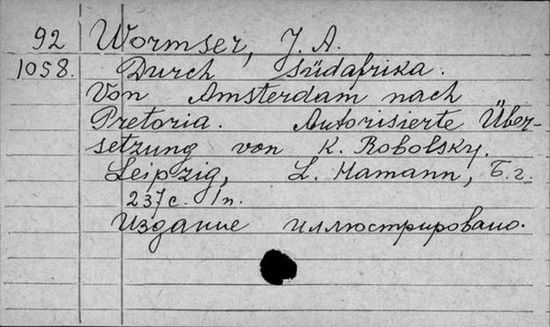 92 Wormser, J. A.
1058. Durch Südafrika.
Von Amsterdam nach
Pretoria. Autorisierte Über-
setzung von K. Robolsky.
Leipzig, L. Hamann, Б.г.
237с. 1п.
Издание иллюстрировано.